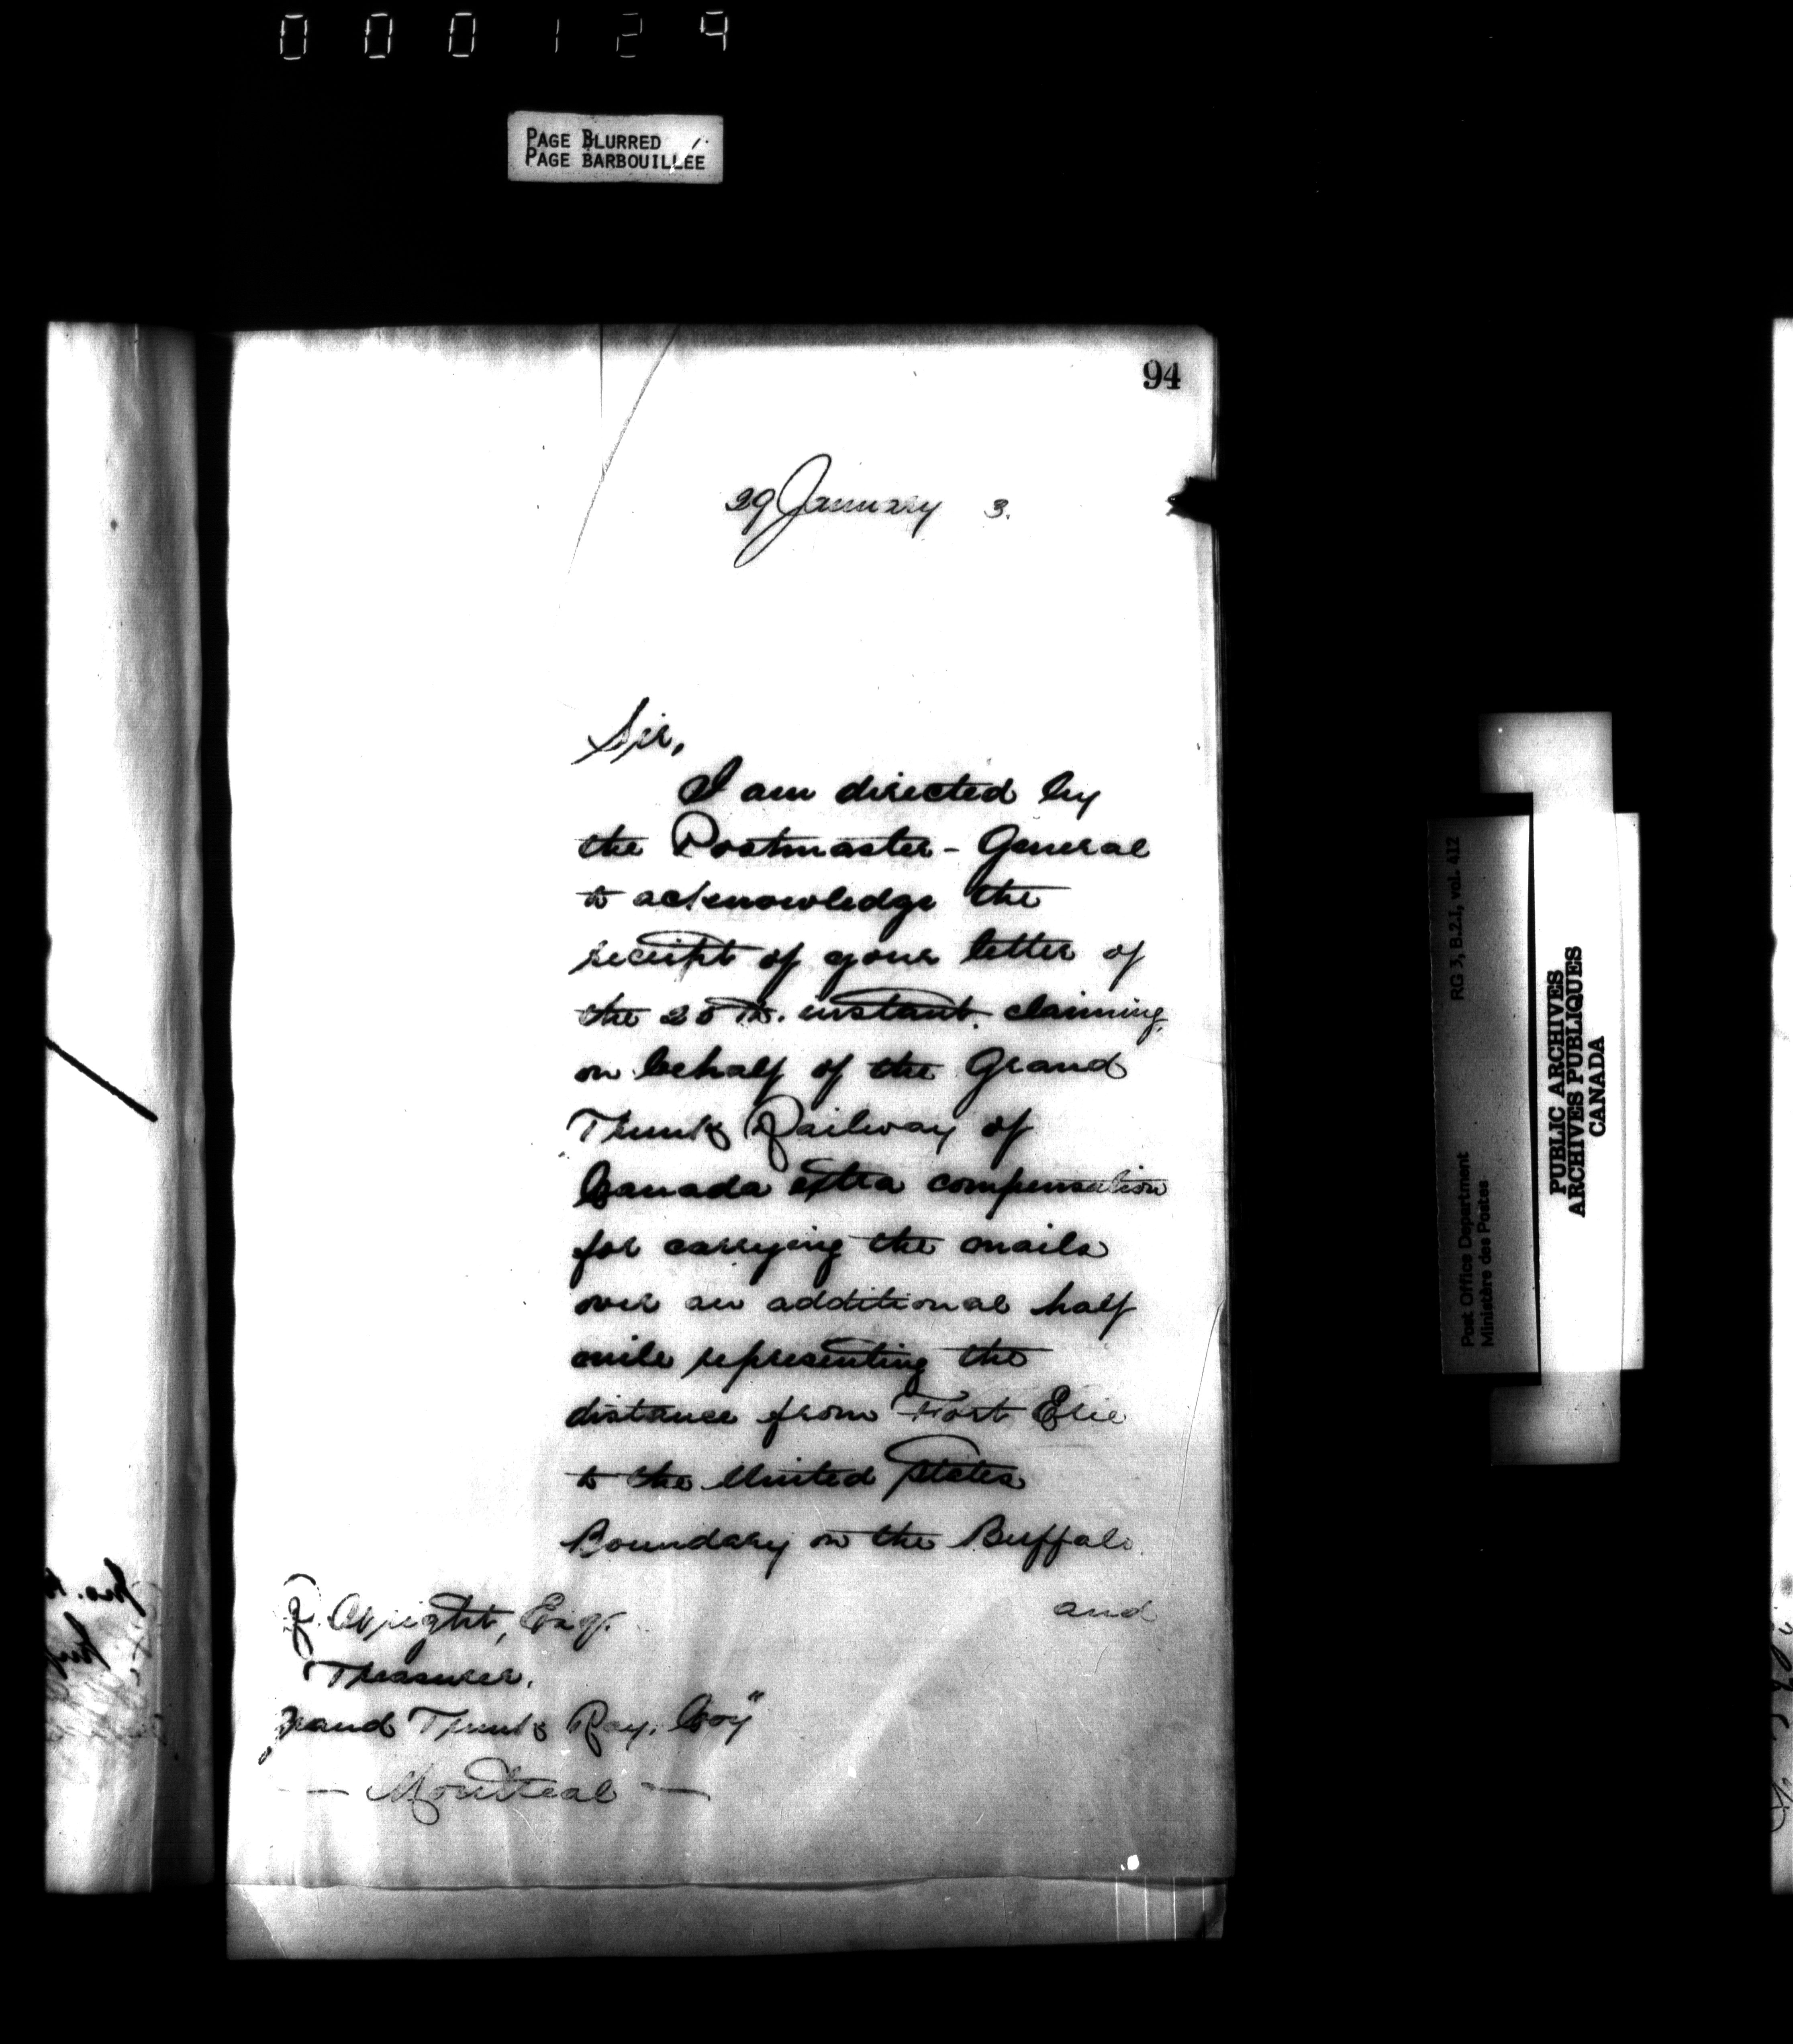 000129
PAGE BLURRED
PAGE BARBOUILLÉE
94
29 January 3.
Sir,
I am directed by
the Postmaster-General
to acknowledge the
receipt of your letter of
the 25th. instant. claiming
on behalf of the Grand
Trunk Railway of
Canada extra compensation
for carrying the mails
over an additional half
mile representing the
distance from Fort Erie
to the United States
Boundary on the Buffalo
and
Wright, Esqr.
Treasurer,
Grand Trunk Ray. Coy"
— Montreal —
RG 3, B.2.I, vol. 412
Post Office Department
Ministère des Postes
PUBLIC ARCHIVES
ARCHIVES PUBLIQUES
CANADA